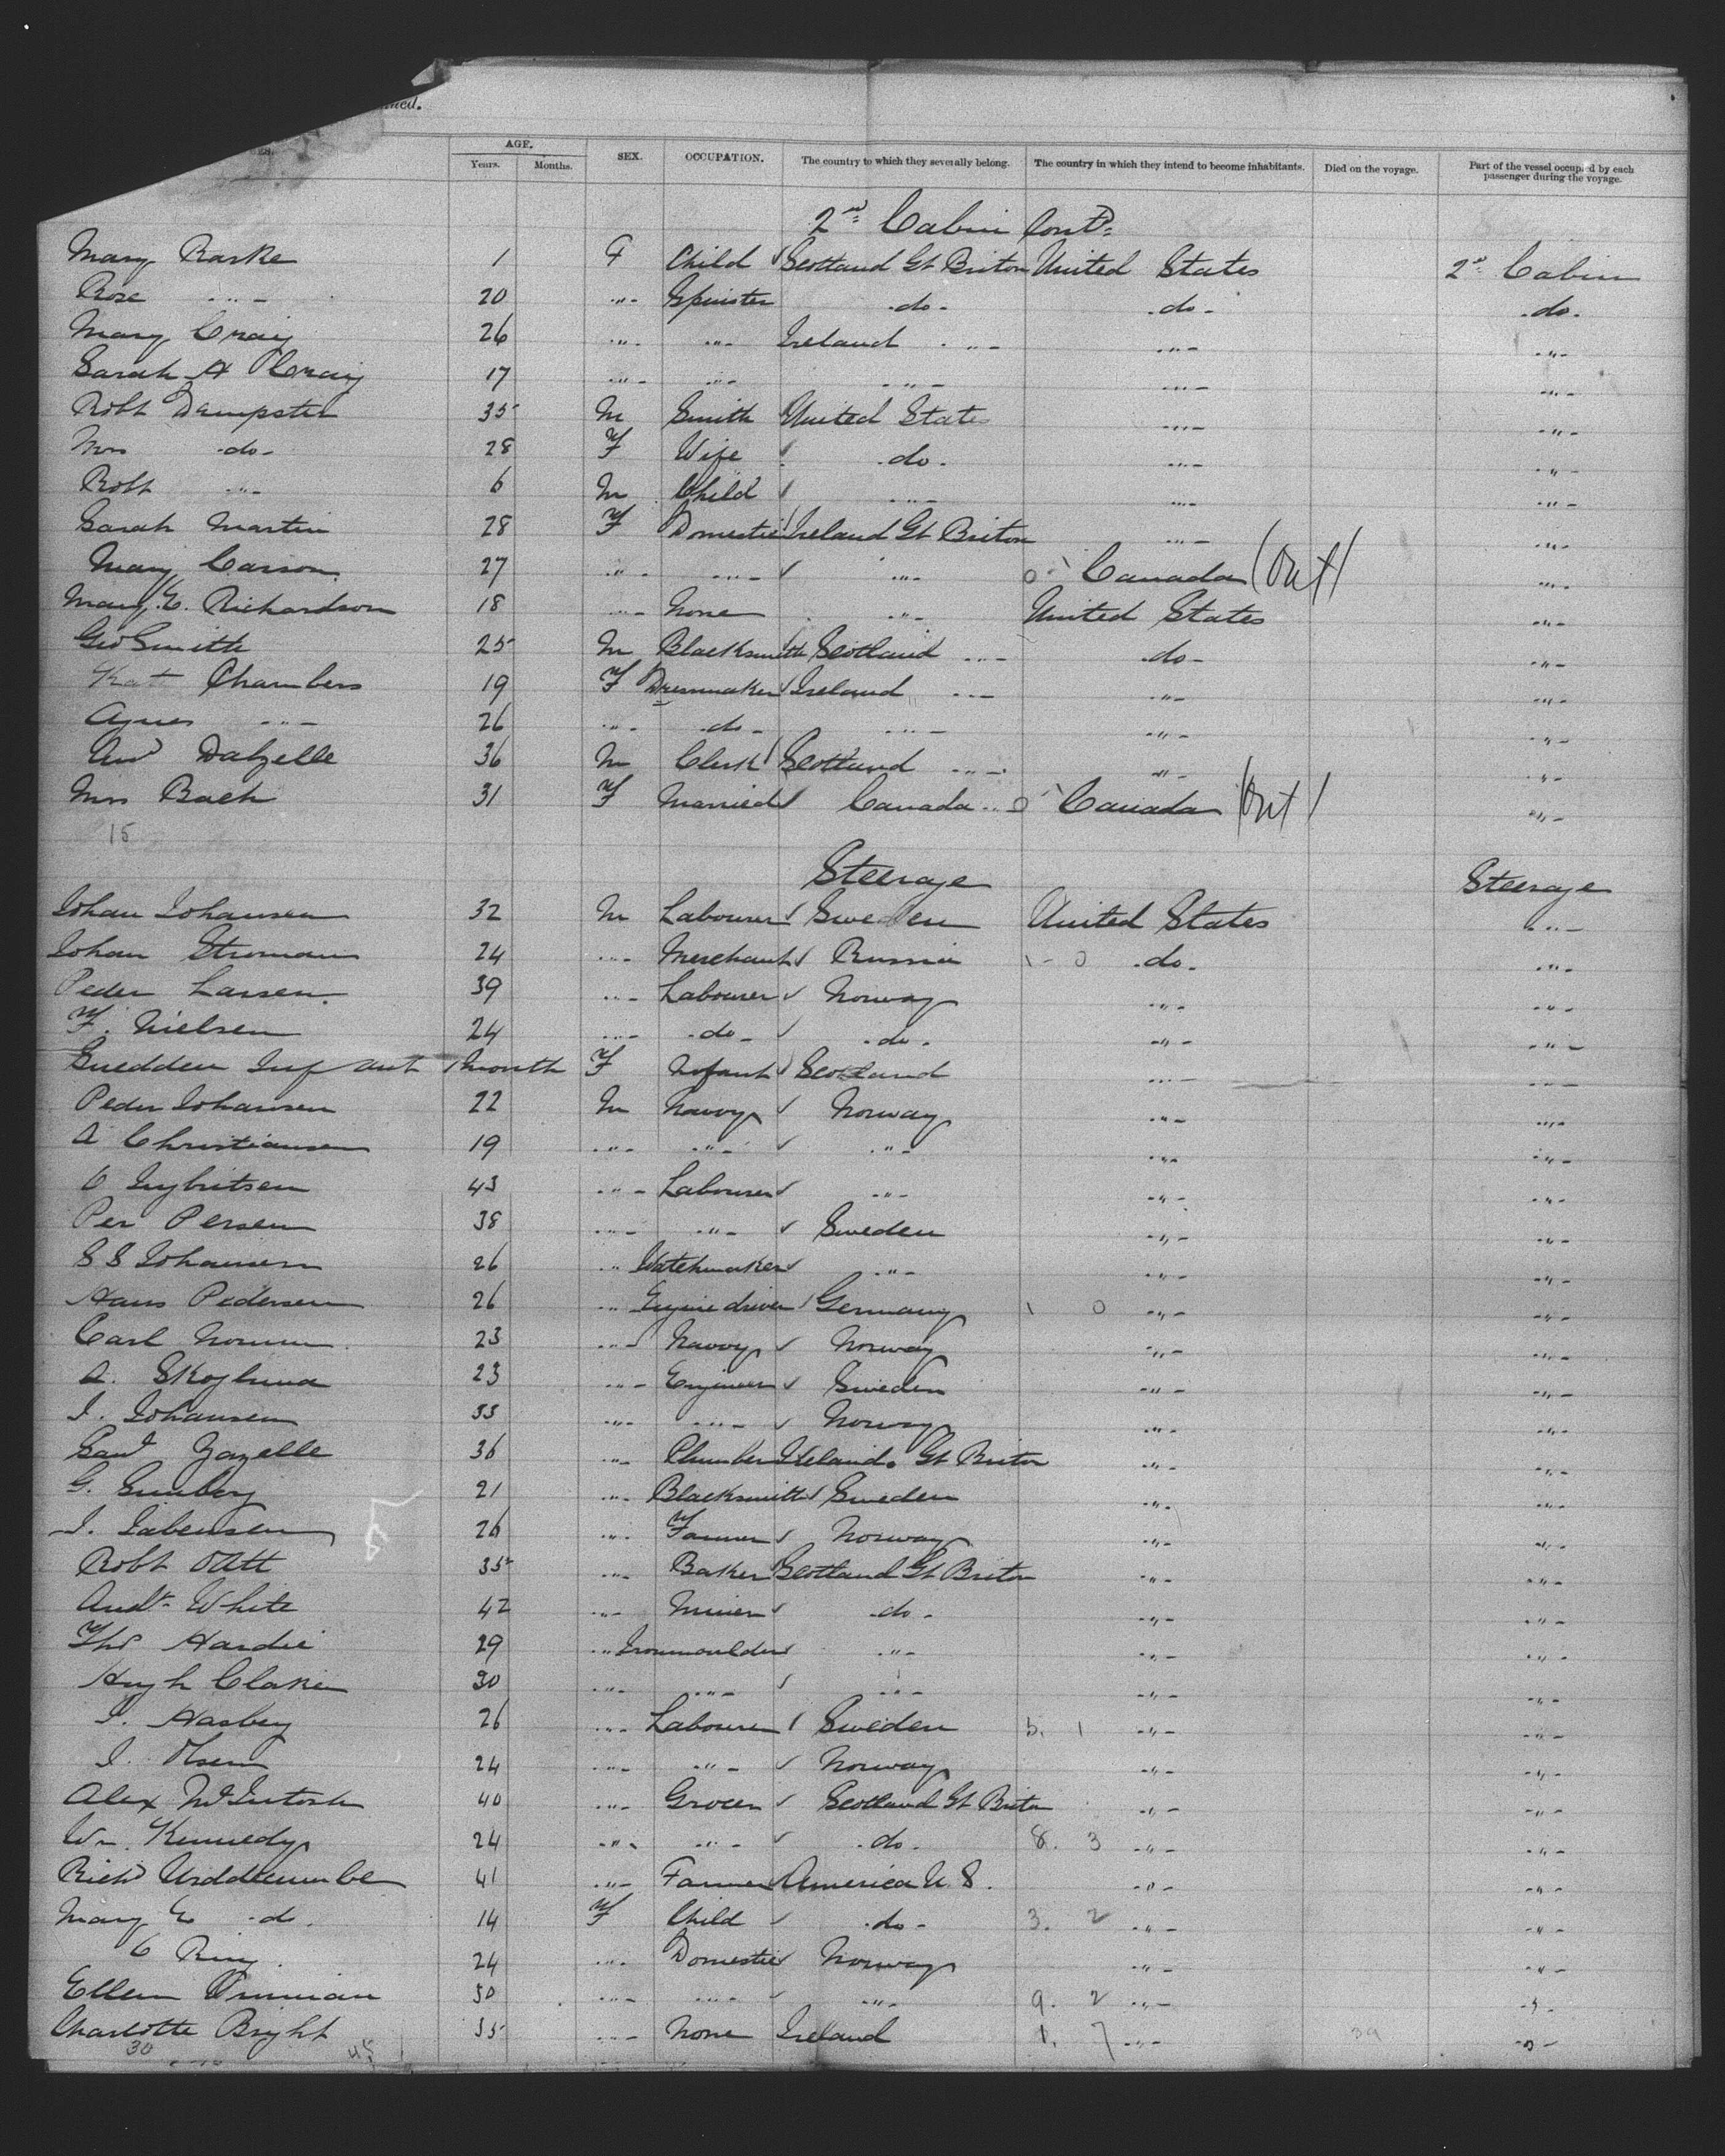 AGE. SEX. OCCUPATION. The country to which they severally belong. The country in which they intend to become inhabitants. Died on the voyage. Part of the vessel occupied by each passenger during the voyage.
Years. Months.
2nd Cabin Contd
Mary Barke 1 F Child Scotland Gt Briton United States 2nd Cabin
Rose " 20 " Spinster do do do
Mary Craig 26 " " Ireland " " "
Sarah A Craig 17 " " " " "
Robt Dempster 35 M Smith United States " "
Mrs do 28 F Wife do " "
Robt " 6 M Child " " "
Sarah Martin 28 F Domestic Ireland Gt Briton " "
Mary Carson 27 " " " Canada (Ont) "
Mary E. Richardson 18 " None " United States "
Geo Smith 25 M Blacksmith Scotland " do "
Kate Chambers 19 F Dressmaker Ireland " " "
Agnes " 26 " do " " "
Dalzelle 36 M Clerk Scotland " " "
Mrs Bach 31 F Married Canada Canada (Ont) "
15
Steerage Steerage
Johan Johansen 32 M Labourer Sweden United States "
Johan Stroman 24 " Merchant Russia do "
Peder Larsen 39 " Labourer Norway " "
F. Nielsen 24 " do do " "
Snedden Infant 1 month F Infant Scotland " "
Peder Johansen 22 M Navvy Norway " "
A Christiansen 19 " " " " "
O Ingbritsen 43 " Labourer " " "
Per Persen 38 " " Sweden " "
S S Johansen 26 " Watchmaker " " "
Hans Pedersen 26 " Engine driver Germany " "
Carl 23 " Navvy Norway " "
A. Skoglund 23 " Engineer Sweden " "
J. Johansen 33 " " Norway " "
36 " Plumber Ireland. Gt Briton " "
G. 21 " Blacksmith Sweden " "
J. 26 " Farmer Norway " "
Robt 35 " Baker Scotland Gt Briton " "
Andw White 42 " Miner do " "
Thos Hardie 29 " Ironmoulder " " "
Hugh 30 " " " " "
J. Hasberg 26 " Labourer Sweden 5. 1 " "
J. Olsen 24 " " Norway " "
Alex McIntosh 40 " Grocer Scotland Gt Briton " "
Wm Kennedy 24 " " do 8. 3 " "
Richd 41 " Farmer America U.S. " "
Mary E do. 14 F Child do 3. 2 " "
C Ring 24 " Domestic Norway " "
Ellen 50 " " " 9. 2 " "
Charlotte Bright 35 " None Ireland 1. 7 " "
30 45 39